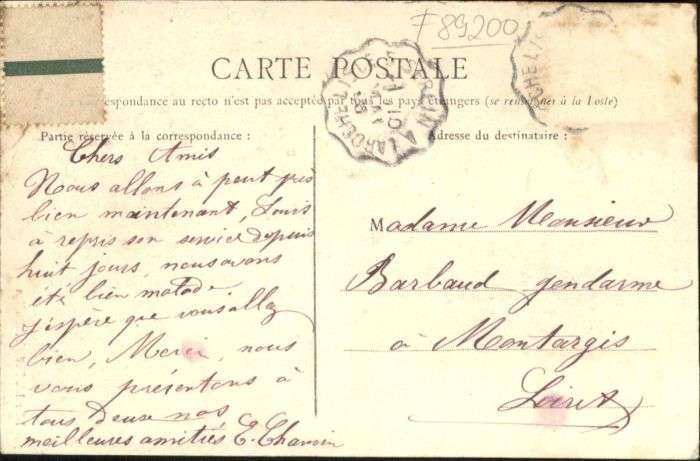 F 89200
CARTE POSTALE
respondance au recto n'est pas accepté par tous les pays étrangers (se renseigner à la Poste)
Partie réservée à la correspondance :
Adresse du destinataire :
Chers Amis
Nous allons à peut près
bien maintenant, Louis
à repris son service depuis
huit jours, nous avons
été bien malade
j'espère que vous allez
bien, Merci, nous
vous présentons à
tous deux nos
meilleures amitiés E.
Madame Monsieur
Barbaud gendarme
à Montargis
Loiret